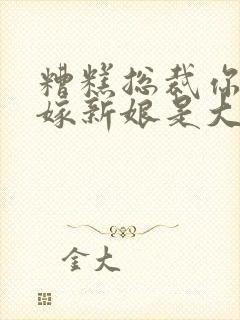 糟糕总裁你
嫁新娘是大
金大